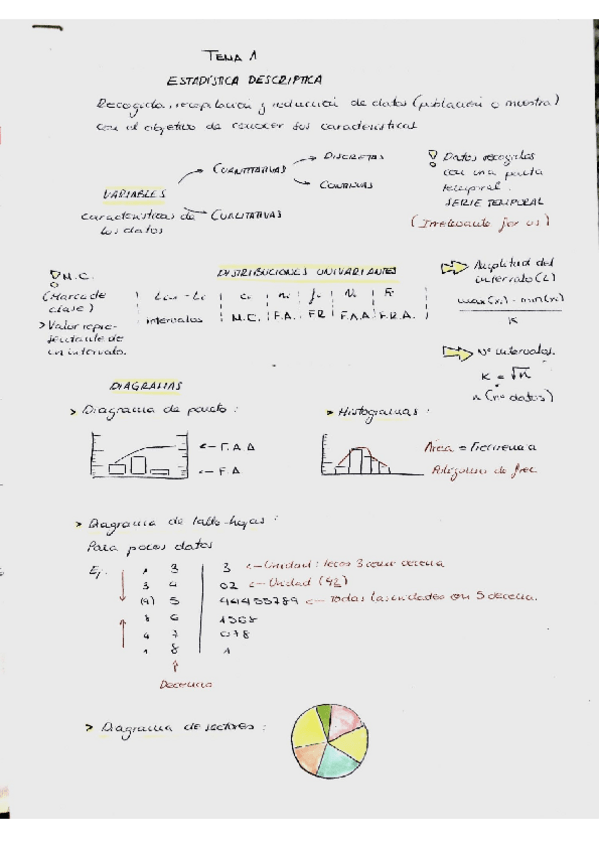 TEMA 1
ESTADÍSTICA DESCRIPTICA
Recogida, recopilación y reducción de datos (población o muestra)
con el objetivo de conocer sus características
VARIABLES
características de
los datos
CUANTITATIVAS
DISCRETAS
CONTINUAS
CUALITATIVAS
Datos recogidos
con una pauta
temporal.
SERIE TEMPORAL
(Irrelevante for us)
M.C.
(Marca de
clase)
> Valor repre-
sentante de
un intervalo.
DISTRIBUCIONES UNIVARIANTES
Li-1 - Li | ci | ni | fi | Ni | Fi
intervalos | M.C. | F.A. | FR | F.A.A | F.R.A.
Amplitud del
intervalo (L)
max(xi) - min(xi)
K
Nº intervalos.
K = √n
n (nº datos)
DIAGRAMAS
> Diagrama de pareto :
← F.A.A
← F.A
> Histogramas :
Área = Frecuencia
Polígonos de frec
> Diagrama de tallo-hojas :
Para pocos datos
Ej. 1 3 | 3 ← Unidad:
3 4 | 02 ← Unidad (42)
(9) 5 | 44455789 ← Todas las unidades con 5 decena.
8 6 | 1368
4 7 | 078
1 8 | 1
Decena
> Diagrama de sectores :